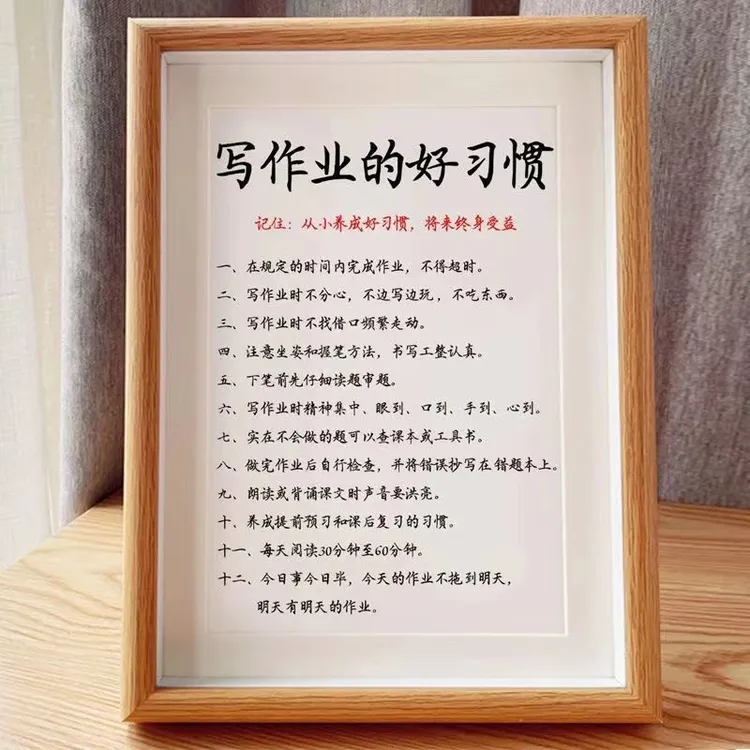 写作业的好习惯
记住：从小养成好习惯，将来终身受益
一、在规定的时间内完成作业，不得超时。
二、写作业时不分心，不边写边玩，不吃东西。
三、写作业时不找借口频繁走动。
四、注意坐姿和握笔方法，书写工整认真。
五、下笔前先仔细读题审题。
六、写作业时精神集中、眼到、口到、手到、心到。
七、实在不会做的题可以查课本或工具书。
八、做完作业后自行检查，并将错误抄写在错题本上。
九、朗读或背诵课文时声音要洪亮。
十、养成提前预习和课后复习的习惯。
十一、每天阅读30分钟至60分钟。
十二、今日事今日毕，今天的作业不拖到明天，
明天有明天的作业。